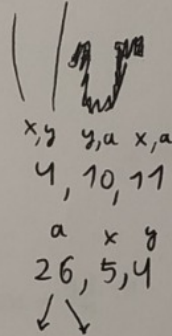 x,y y,a x,a
4, 10, 11
a x y
26, 5, 4